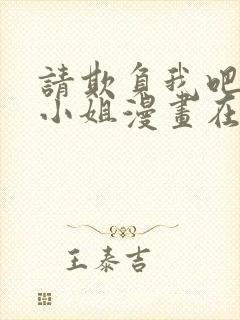 請欺負我吧
小姐漫畫在
王泰吉